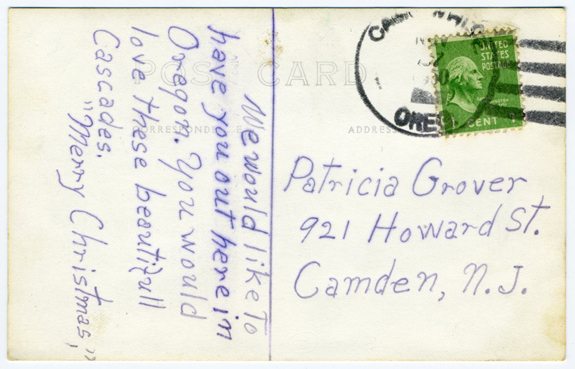 POST CARD
CORRESPONDENCE
ADDRESS
We would like To
have you out here in
Oregon. You would
love these beautifull
Cascades.
"Merry Christmas,"
UNITED
STATES
POSTAGE
CENT
OREG
Patricia Grover
921 Howard St.
Camden, N.J.